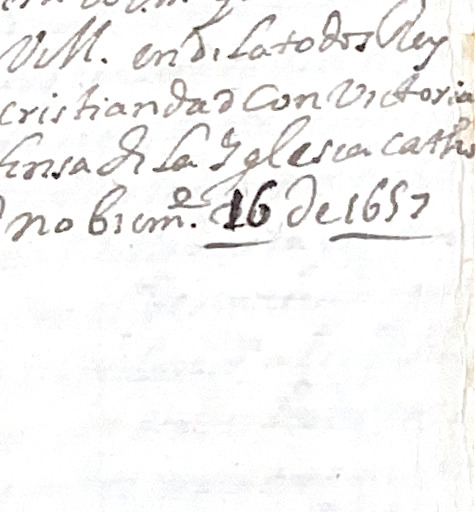 VM. en dilatodos Rey
cristiandad con Victoria
fensa de la Yglesia Catho
nobiem.e 16 de 1657